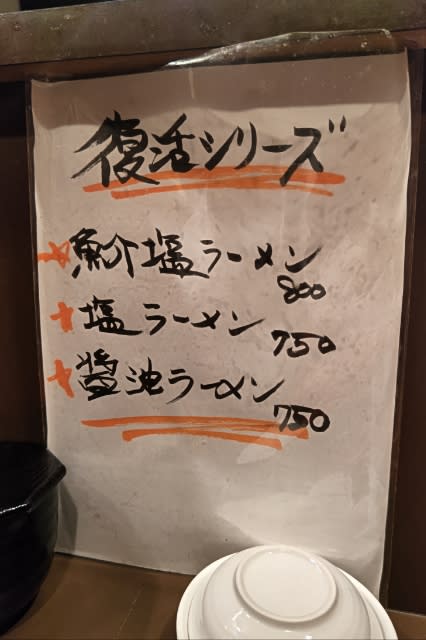 復活シリーズ
☆魚介塩ラーメン
800
☆塩ラーメン
750
☆醤油ラーメン
750